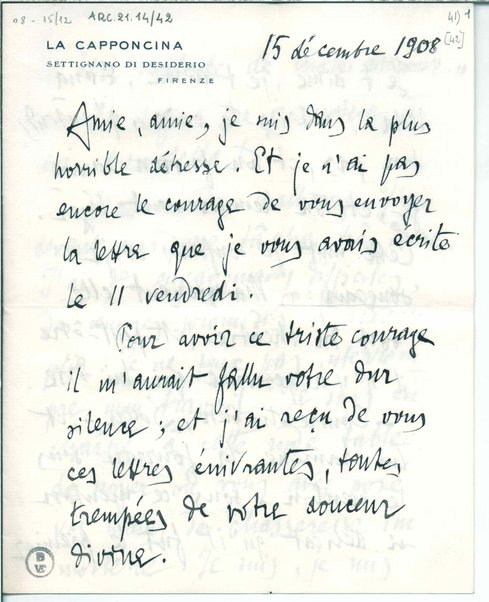 08 - 15/12 ARC.21.14/42
41) 1
[42]
LA CAPPONCINA
SETTIGNANO DI DESIDERIO
FIRENZE
15 décembre 1908
Amie, amie, je suis dans la plus
horrible détresse. Et je n'ai pas
encore le courage de vous envoyer
la lettre que je vous avais écrite
le 11 vendredi.
Pour avoir ce triste courage
il m'aurait fallu votre dur
silence ; et j'ai reçu de vous
ces lettres énivrantes, toutes
trempées de votre douceur
divine.